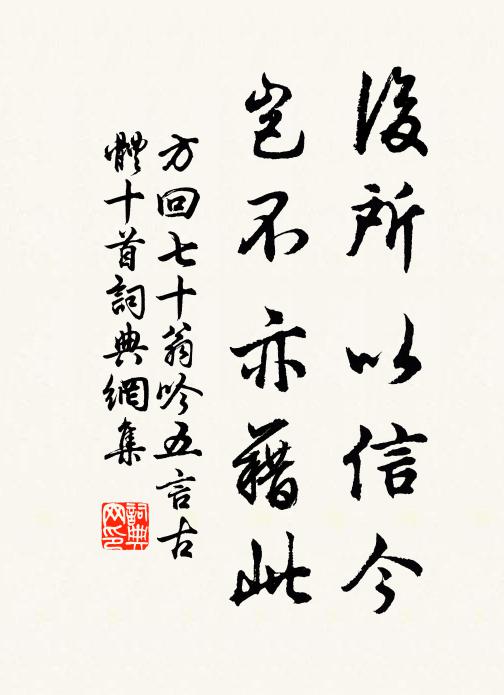 後所以信今
豈不亦藉此
方回七十翁吟五言古
體十首詞典網集
詞典
网印